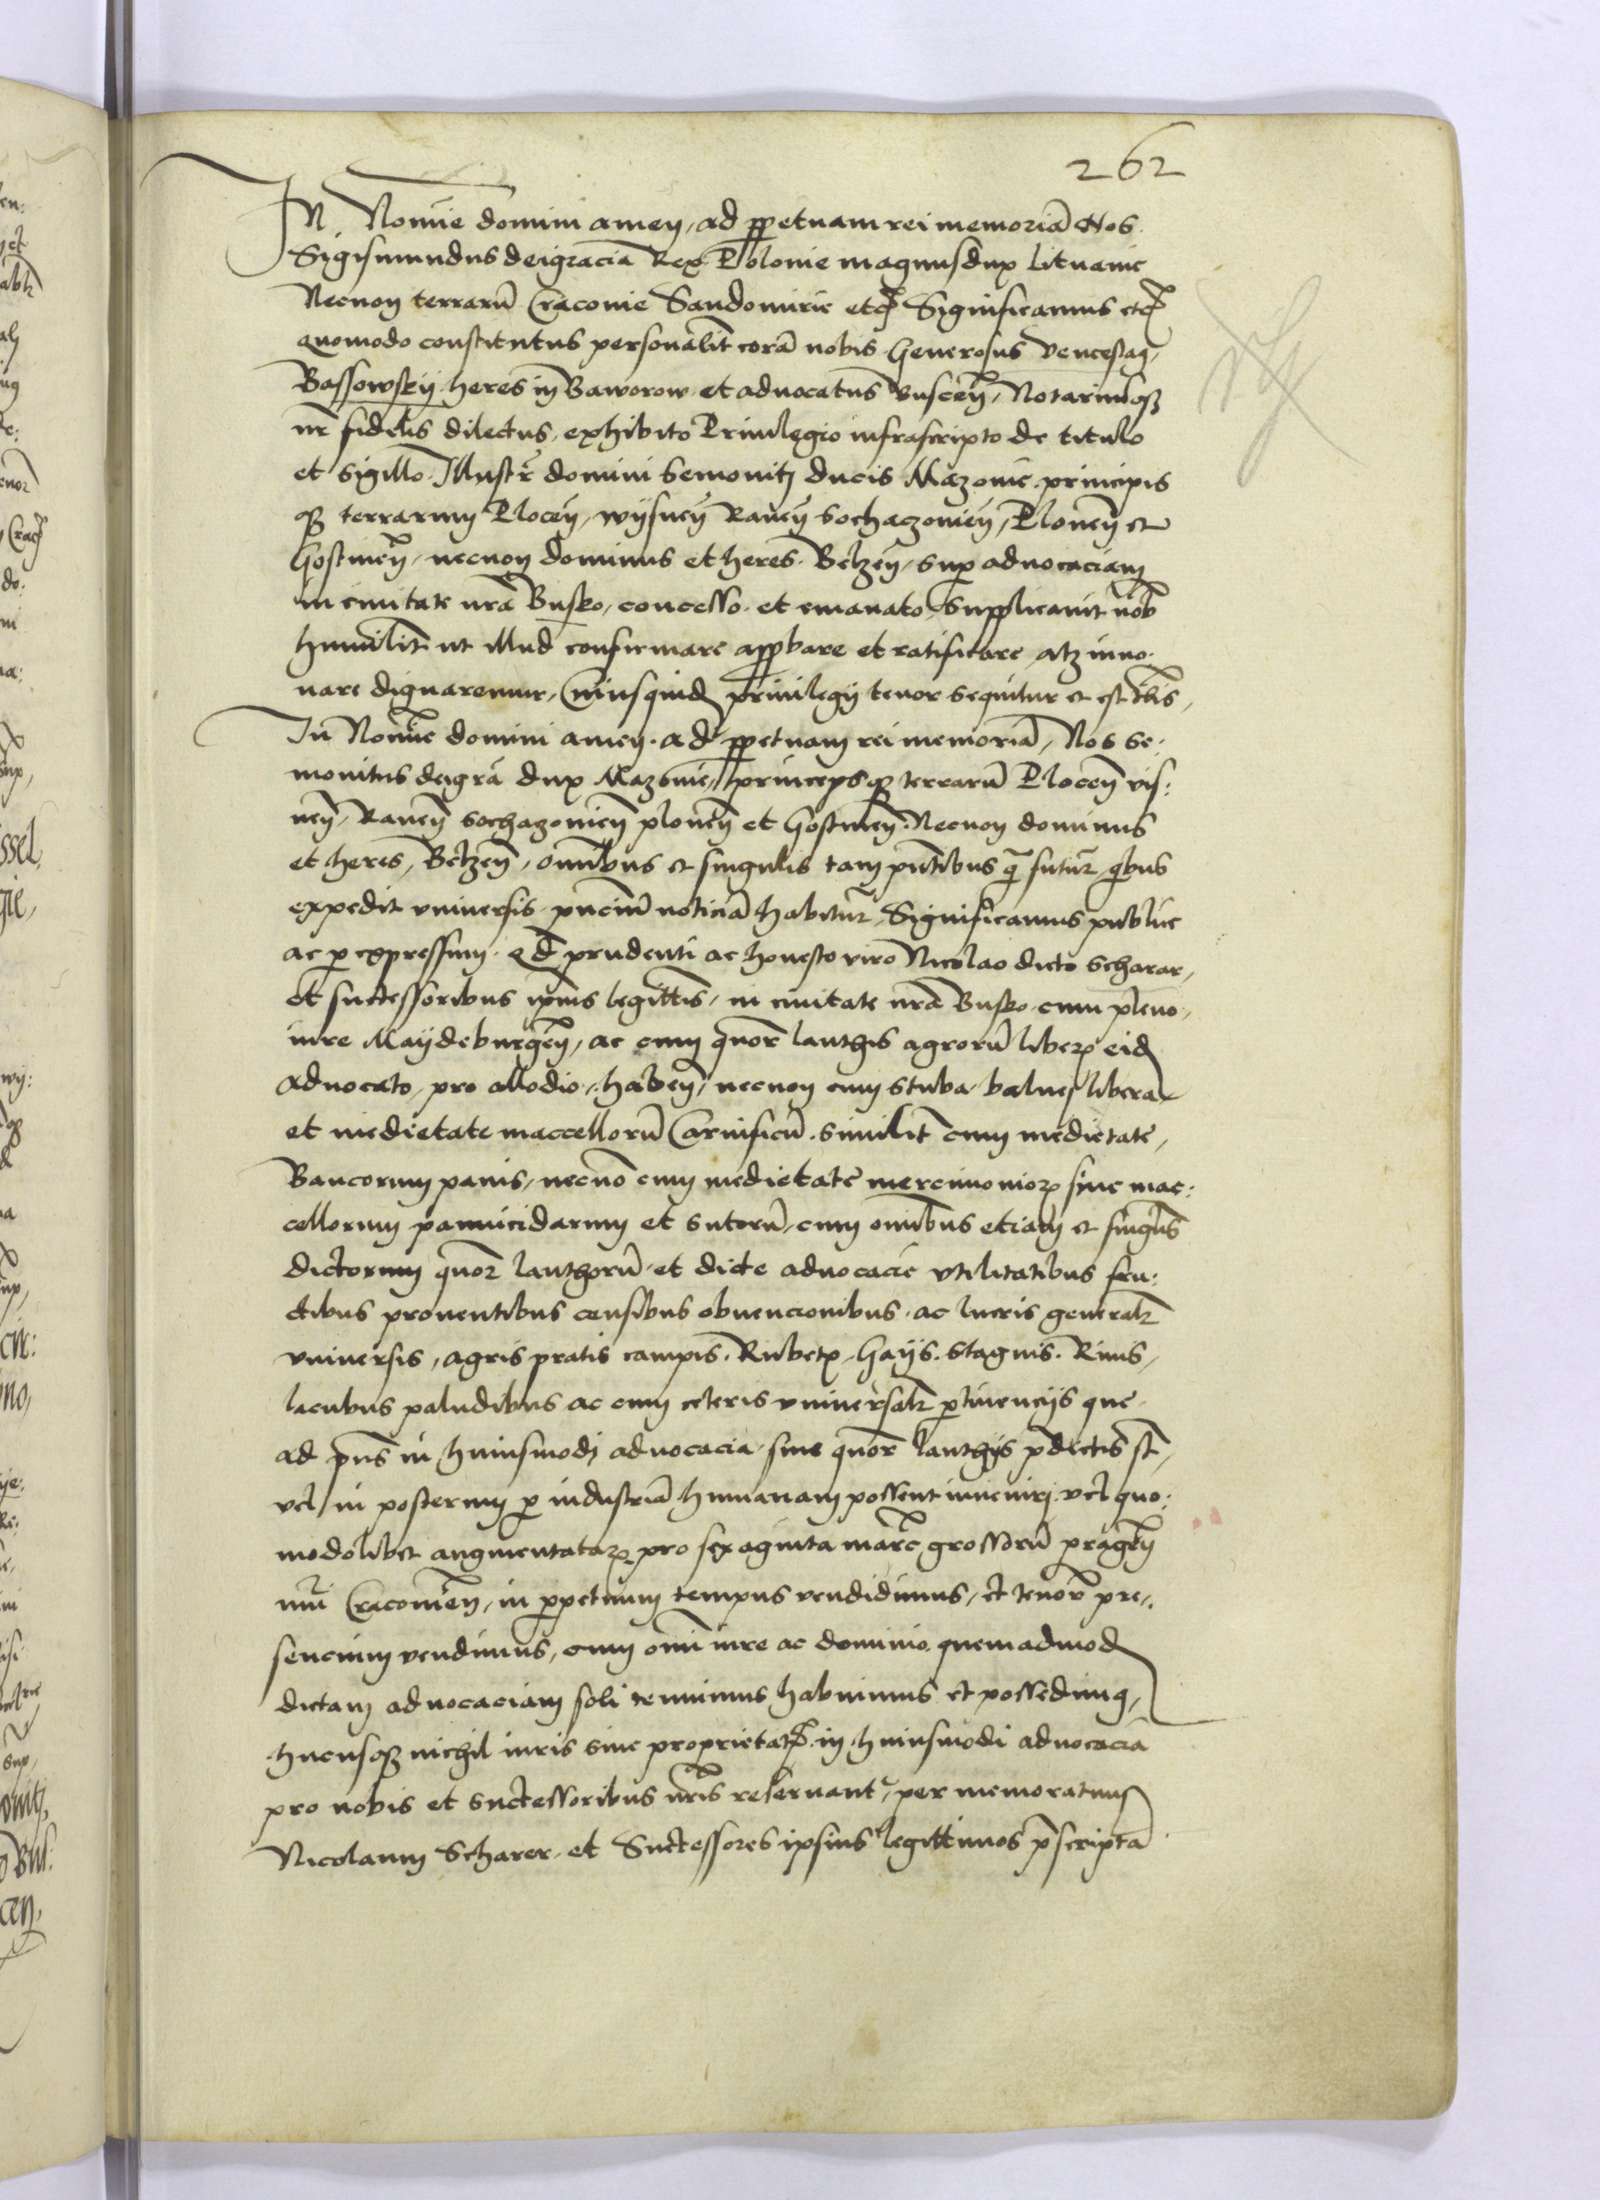 262
In Nomine domini amen, ad ppetuam rei memoriã Nos
Sigismundus dei gracia Rex Polonie magnus dux Lituanie
Necnon terrarũ Cracovie Sandomirie etc Significamus etc
Quomodo constitutus personalit corã nobis Generosus Venceslaq
Bassowskij heres in Baworow et advocatus buscen, Notariusq
nr fidelis dilectus, exhibito Privilegio infrascripto de titulo
et sigillo Illustr domini Semovitj ducis Mazovie principis
q terrarum Plocen, wijsnen Raven Sochaczovien, Plonen et
Gostinen, necnon dominus et heres Belzen, sup advocaciam
in civitate nrã Busko, concesso et emanato Supplicavit nob
humilit ut illud confirmare appbare et ratificare atz inno-
vare dignaremur, Cuiusquid privilegij tenor sequitur et est tlis,
In Nomine domini amen. ad ppetuam rei memoriã, Nos Se:
movitus dei grã dux Mazovie, princepsq terrarũ Plocen vis:
nen, Raven Sochazovien plonen et Gostinen Necnon dominus
et heres, Belzen, omibus et singulis tam pntibus q futur qbus
expedit universis pncium noticiã habitur, Significamus publice
ac p expressum qd prudenti ac honesto viro Nicolao dicto Scharar,
et successoribus ipius legittis, in civitate nrã Busko cum pleno,
iure Maijdeburgen, ac cum quor lanthis agrorũ liber eid
advocato, pro allodio, haben, necnon cum stuba balnej libera
et medietate maccellorũ Carnificũ similit cum medietate,
Bancorum panis, necnõ cum medietate mercimonior sive mac:
cellorum pannicidarum et sutorũ, cum omibus etiam et singlis
dictorum quor lanthorũ et dicte advocacie utilitatibus fru:
ctibus proventibus censibus obvencionibus ac lucris generalr
universis, agris pratis campis. Rubetx Gaijs. Stagnis. Rivis,
lacubus paludibus ac cum ceteris universalr ptinencijs que
ad pns in huiusmodj advocacia sive quor lanthijs pdictis st,
vel in posterum p industriã humanam possent invenirj vel quo:
modolibet augmentatar pro sexaginta marc grossorũ pragen
nũi Cracovien, in ppetuum tempus vendidimus, et tenor pre:
sencium vendimus, cum omi iure ac dominio quemadmod
dictam advocaciam soli tenuimus habuimus et possedimq,
huensq nichil iuris sive proprietat in huiusmodi advocacia
pro nobis et successoribus nris reservant, per memoratum
Nicolaum Scharer et Successores ipsius legittimos pscriptã